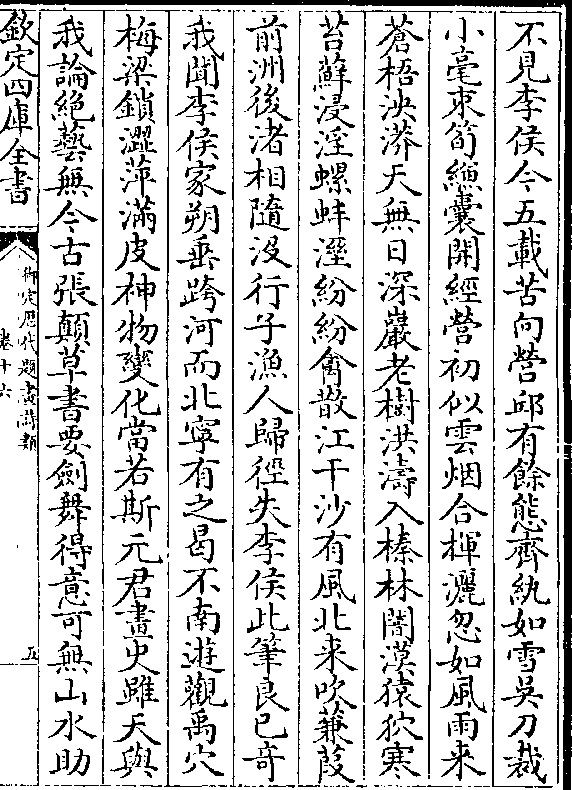 不見李侯今五載苦向營邱有餘態齊紈如雪吳刀裁
小毫束筍緗囊開經營初似雲烟合揮灑忽如風雨來
蒼梧泱漭天無日深巖老樹洪濤入榛林闇漠猿狖寒
苔蘚浸淫螺蚌溼紛紛禽散江干沙有風北來吹蒹葭
前洲後渚相隨没行子漁人歸徑失李侯此筆良已奇
我聞李侯家朔垂跨河而北寧有之曷不南遊觀禹穴
梅梁鎖澀萍滿皮神物變化當若斯元君畫史雖天與
我論絶藝無今古張顛草書要劍舞得意可無山水助
欽定四庫全書
御定歴代題畫詩類
卷十六
五